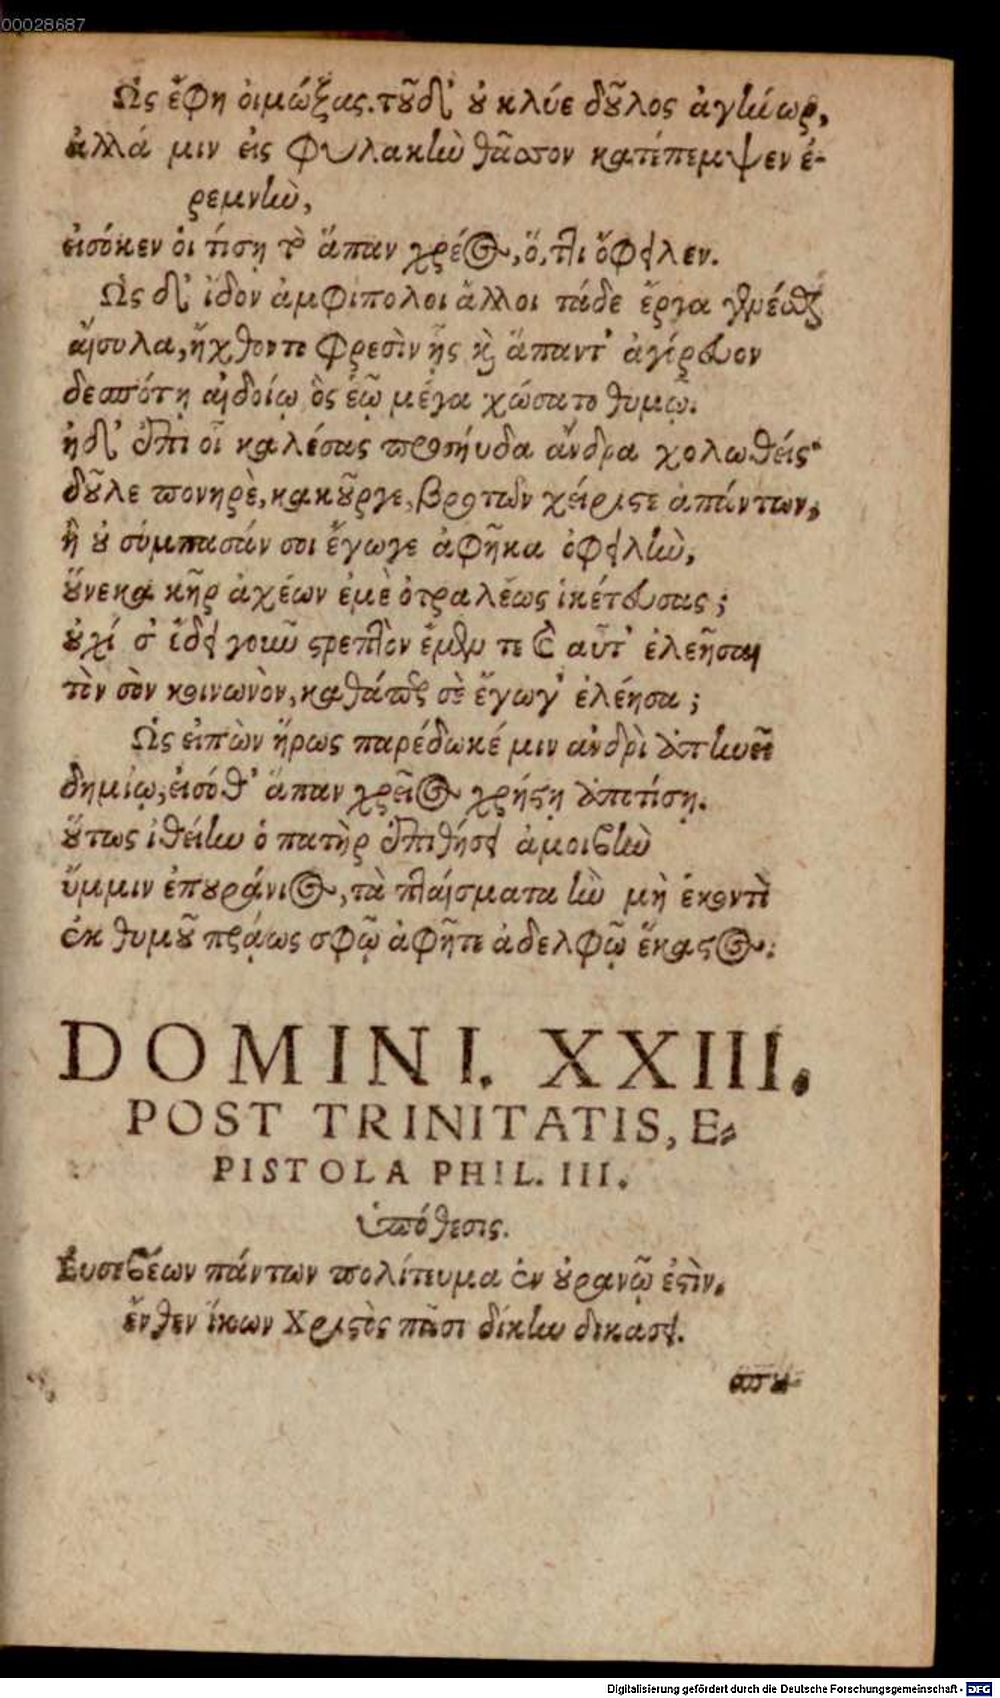 00028687
Ὣς ἔφη οἰμώξας. τοῦ δ' οὐ κλύε δοῦλος ἀγήνωρ,
ἀλλά μιν εἰς φυλακὴν θᾶσσον κατέπεμψεν ἐ-
ρεμνὴν,
εἰσόκεν οἱ τίσῃ τὸ ἅπαν χρέος, ὅ, τι ὄφειλεν.
Ὣς δ' ἴδον ἀμφίπολοι ἄλλοι τάδε ἔργα
αἴσυλα, ἤχθοντο φρεσὶν ᾗς καὶ ἅπαντ' ἀγόρευον
δεσπότῃ αἰδοίῳ ὃς ἑῷ μέγα χώσατο θυμῷ.
ἠδ' ἐπὶ οἷ καλέσας προσηύδα ἄνδρα χολωθείς·
δοῦλε πονηρὲ, κακοῦργε, βροτῶν χείριστε ἁπάντων,
ἦ οὐ σύμπασάν σοι ἔγωγε ἀφῆκα ὀφειλὴν,
οὕνεκα κῆρ ἀχέων ἐμὲ ὀτραλέως ἱκέτευσας;
οὐχί σ' ἔδει γοιοῦ στρεπτὸν ἔμεναι τε καὶ αὖτ' ἐλεῆσαι
τὸν σὸν κοινωνὸν, καθάπερ σὲ ἔγωγ' ἐλέησα;
Ὣς εἰπὼν ἥρως παρέδωκέ μιν ἀνδρὶ ἀπηνεῖ
δημίῳ, εἰσόθ' ἅπαν χρεῖος χρήστῃ ἀποτίσῃ.
οὕτως ἰθείην ὁ πατὴρ ἐπιθήσει ἀμοιβὴν
ὕμμιν ἐπουράνιος, τὰ πταίσματα ἢν μὴ ἑκοντὶ
ἐκ θυμοῦ πράως σφῷ ἀφῆτε ἀδελφῷ ἕκαστος:
DOMINI. XXIII.
POST TRINITATIS, E-
PISTOLA PHIL. III.
ὑπόθεσις.
Εὐσεβέων πάντων πολίτευμα ἐν οὐρανῷ ἐστὶν,
ἔνθεν ἵκων Χριστὸς πᾶσι δίκην δικάσει.
Digitalisierung gefördert durch die Deutsche Forschungsgemeinschaft - DFG